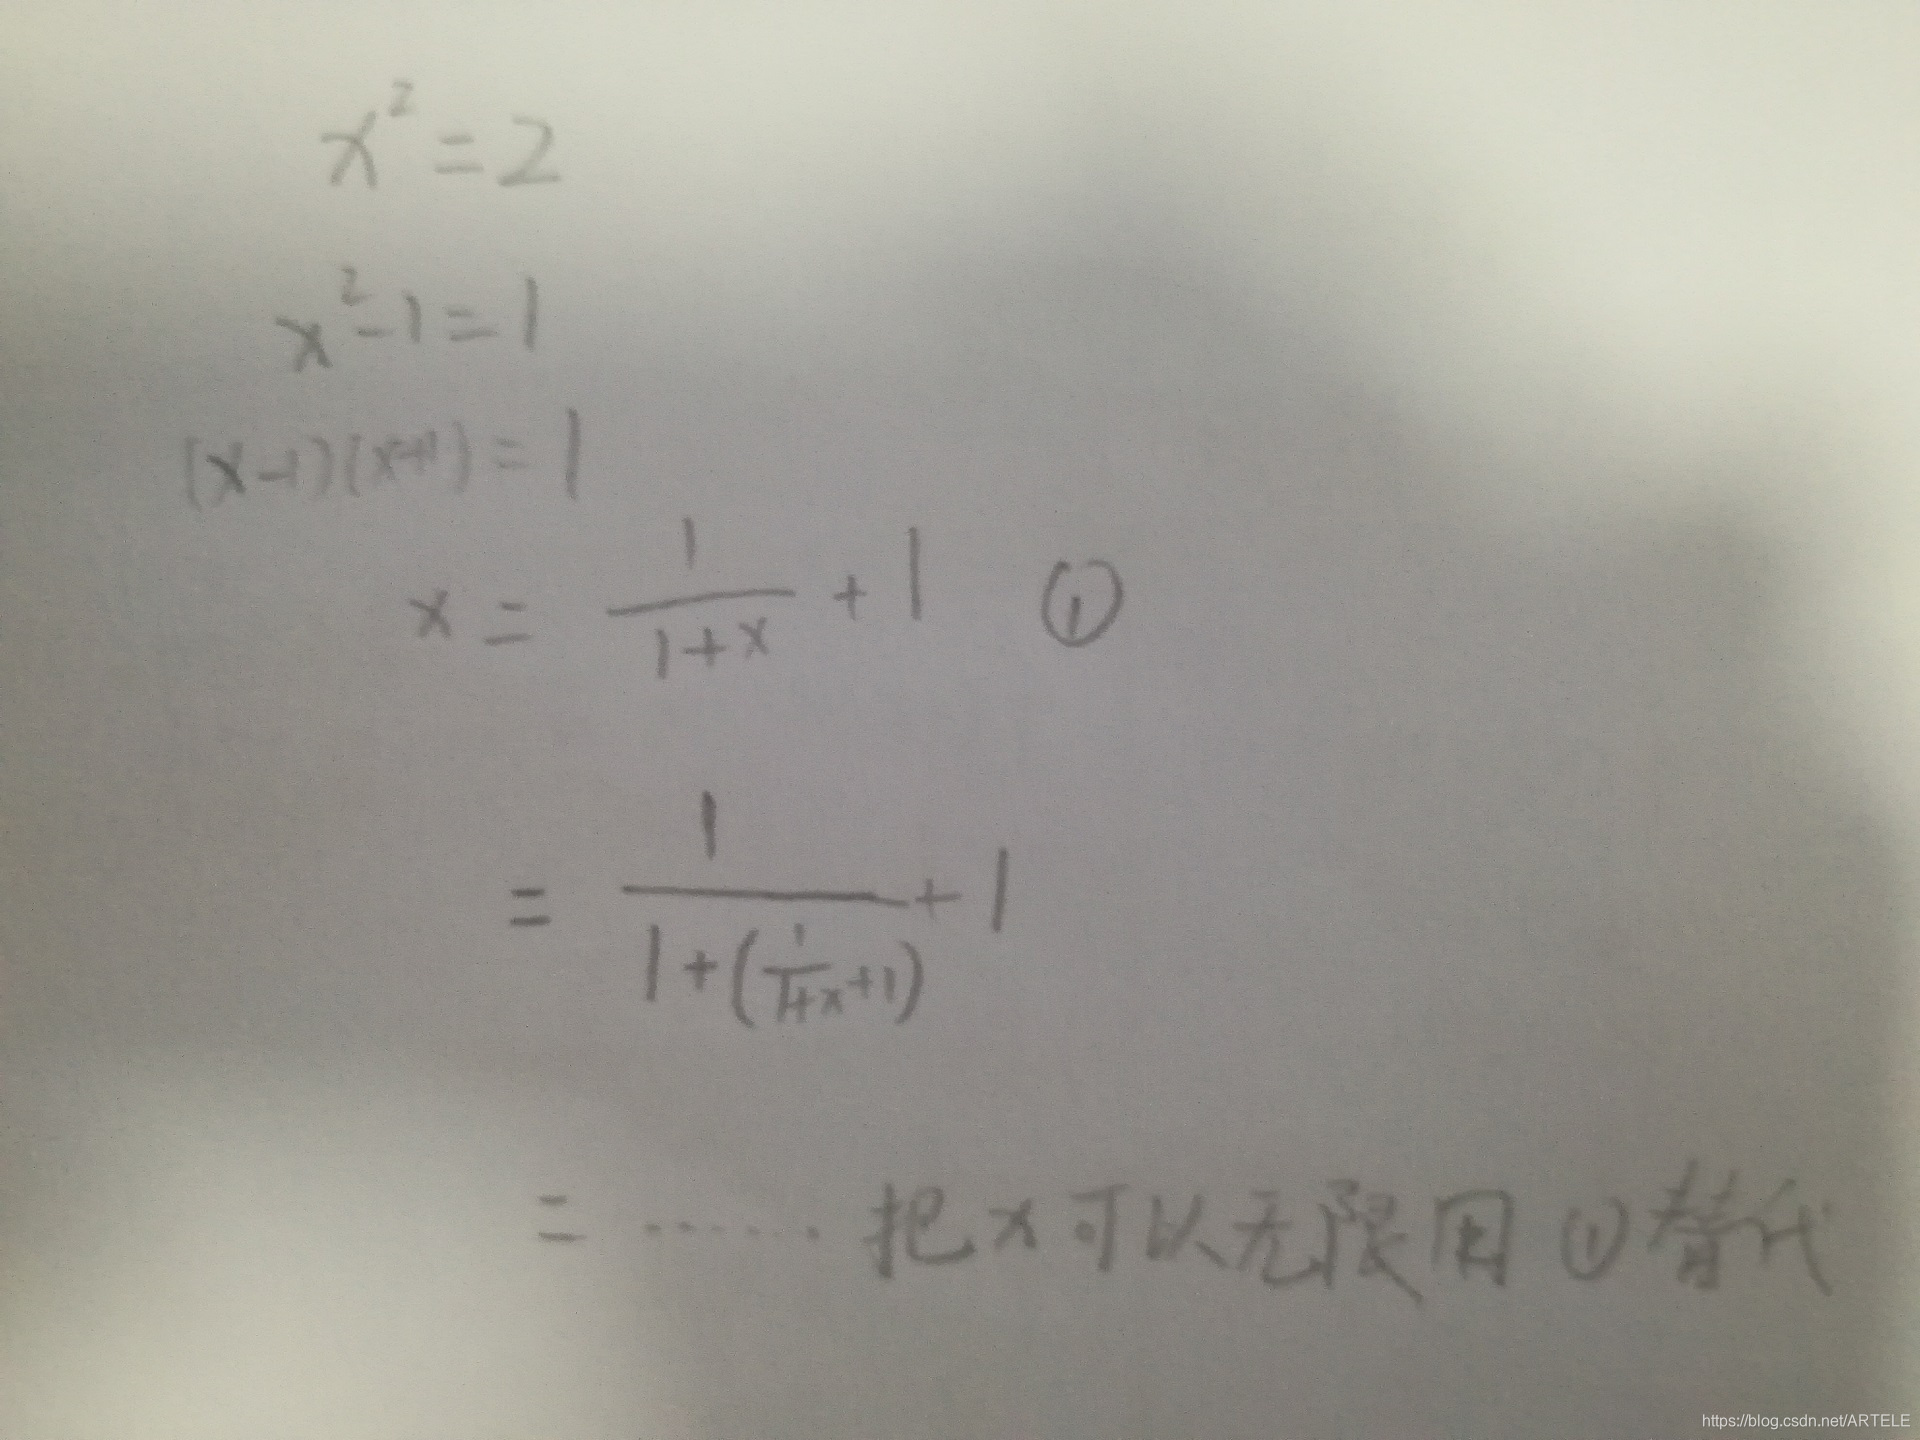 x² = 2
x² - 1 = 1
(x-1)(x+1) = 1
x = 1/(1+x) + 1 ①
= 1/(1+(1/(1+x)+1)) + 1
= ...... 把x可以无限用①替代
https://blog.csdn.net/ARTELE